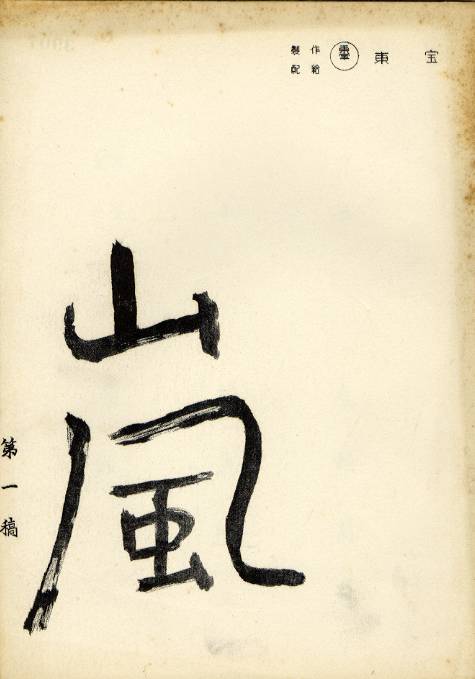 製作
配給
東宝
嵐
第一稿